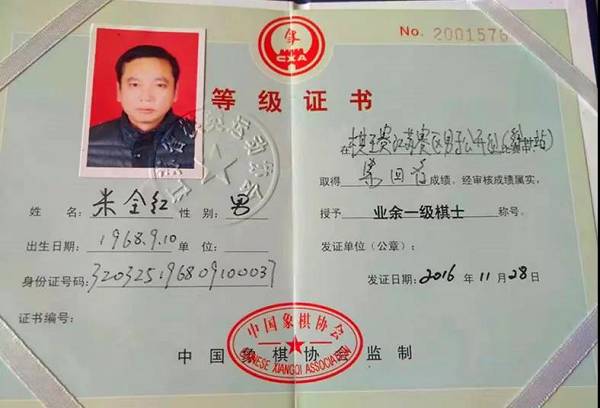 CXA
No. 2001576
等级证书
姓 名: 米全红 性 别: 男
出生日期: 1968.9.10 单 位:
身份证号码: 320325196809100037
证书编号:
在 棋王赛江苏赛区男子公开组
取得 成绩,经审核成绩属实,
授予 业余一级棋士 称号。
发证单位(公章):
发证日期: 2016 年 11 月 28 日
中国象棋协会
CHINESE XIANGQI ASSOCIATION
中国象棋协会监制